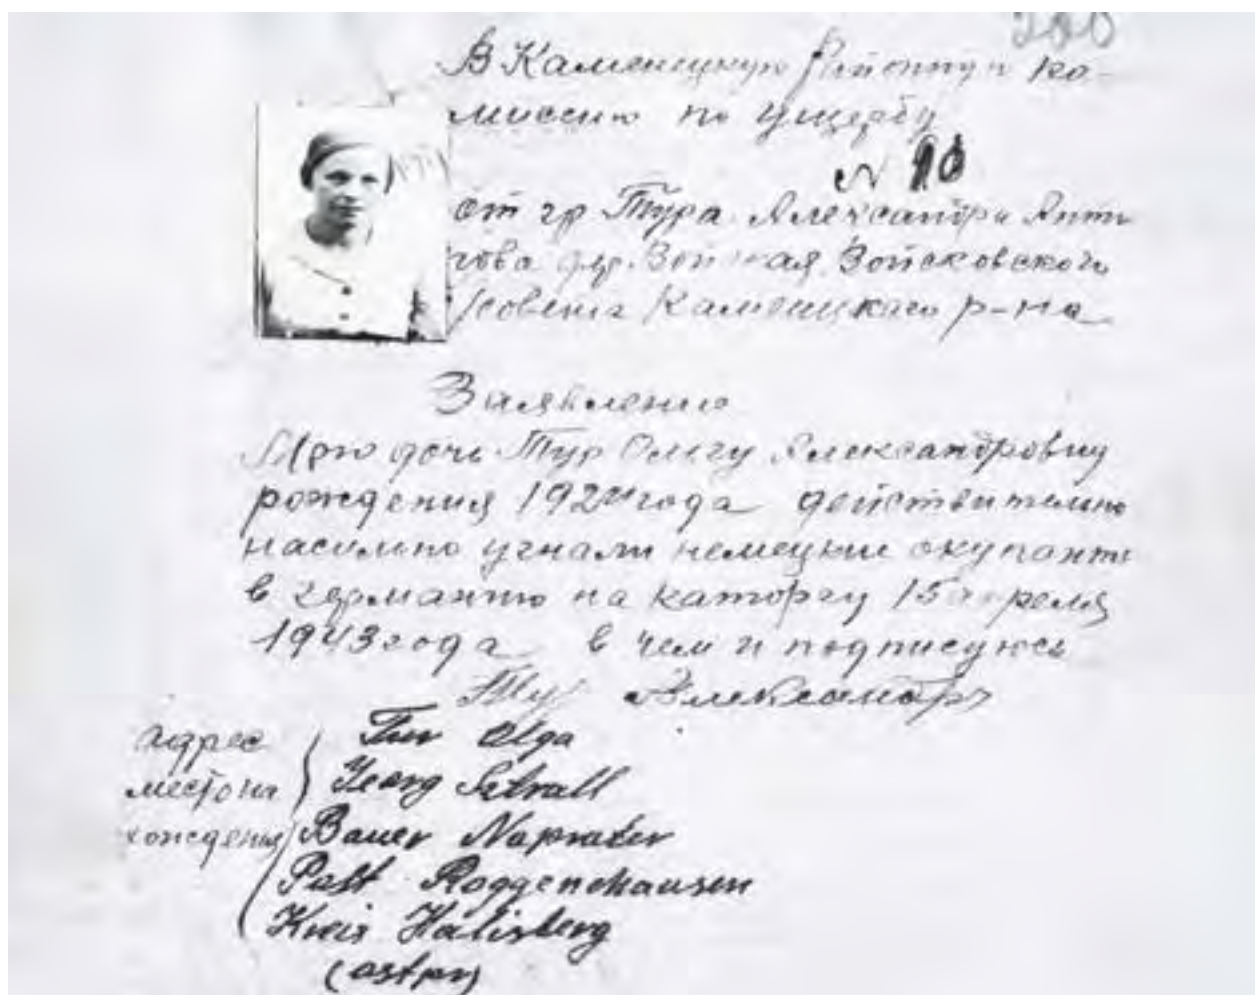 200
В Каменецкую районную ко-
миссию по ущербу
N
от гр Тура Александра Анти
дер. Войская Войсковского
совета Каменецкого р-на
Заявление
Мою дочь Тур Ольгу Александровну
рождения года действительно
насильно угнали немецкие окупанты
в германию на каторгу 15 апреля
1943 года в чем и подписуюсь
Тур Александр
адрес
местона
хождения
Tur Olga
Georg
Bauer
Post Roggenhausen
Kreis
(ostpr)